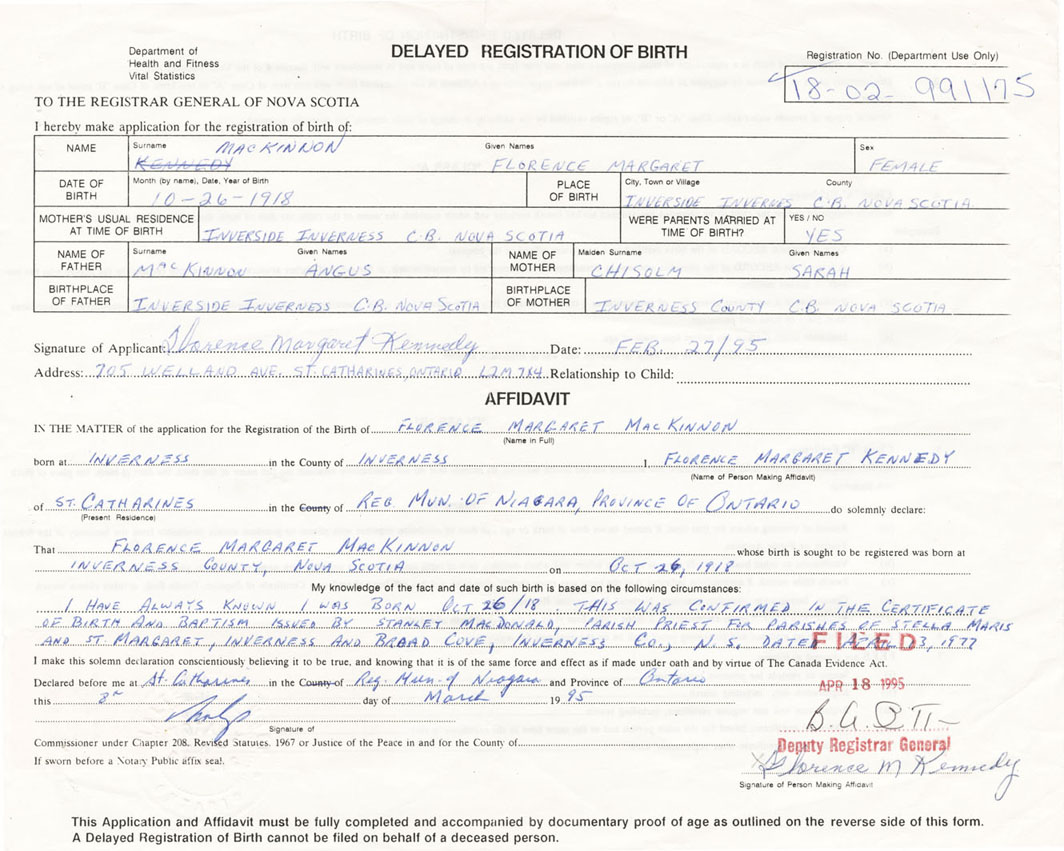 Department of
Health and Fitness
Vital Statistics
DELAYED REGISTRATION OF BIRTH
Registration No. (Department Use Only)
18-02-991175
TO THE REGISTRAR GENERAL OF NOVA SCOTIA
I hereby make application for the registration of birth of:
NAME
Surname MACKINNON
KENNEDY
Given Names
FLORENCE MARGARET
Sex
FEMALE
DATE OF BIRTH
Month (by name), Date, Year of Birth
10-26-1918
PLACE OF BIRTH
City, Town or Village County
INVERSIDE INVERNES C.B. NOVA SCOTIA
MOTHER'S USUAL RESIDENCE AT TIME OF BIRTH
INVERSIDE INVERNESS C.B. NOVA SCOTIA
WERE PARENTS MARRIED AT TIME OF BIRTH?
YES / NO
YES
NAME OF FATHER
Surname Given Names
MACKINNON ANGUS
NAME OF MOTHER
Maiden Surname Given Names
CHISOLM SARAH
BIRTHPLACE OF FATHER
INVERSIDE INVERNESS C.B. NOVA SCOTIA
BIRTHPLACE OF MOTHER
INVERNESS COUNTY C.B. NOVA SCOTIA
Signature of Applicant: Florence Margaret Kennedy Date: FEB. 27/95
Address: 705 WELLAND AVE. ST. CATHARINES, ONTARIO L2M 7X4 Relationship to Child:
AFFIDAVIT
IN THE MATTER of the application for the Registration of the Birth of FLORENCE MARGARET MACKINNON
(Name in Full)
born at INVERNESS in the County of INVERNESS I, FLORENCE MARGARET KENNEDY
(Name of Person Making Affidavit)
of ST. CATHARINES in the County of REG. MUN. OF NIAGARA, PROVINCE OF ONTARIO do solemnly declare:
(Present Residence)
That FLORENCE MARGARET MACKINNON whose birth is sought to be registered was born at
INVERNESS COUNTY, NOVA SCOTIA on OCT 26, 1918
My knowledge of the fact and date of such birth is based on the following circumstances:
I HAVE ALWAYS KNOWN I WAS BORN OCT 26/18 THIS WAS CONFIRMED IN THE CERTIFICATE
OF BIRTH AND BAPTISM ISSUED BY STANLEY MACDONALD, PARISH PRIEST FOR PARISHES OF STELLA MARIS
AND ST. MARGARET, INVERNESS AND BROAD COVE, INVERNESS CO., N.S. DATED 3, 1977
FILED
I make this solemn declaration conscientiously believing it to be true, and knowing that it is of the same force and effect as if made under oath and by virtue of The Canada Evidence Act.
Declared before me at St. Catharines in the County of Reg. Mun. of Niagara and Province of Ontario
APR 18 1995
this 3rd day of March 19 95
Signature of
Commissioner under Chapter 208, Revised Statutes, 1967 or Justice of the Peace in and for the County of
Deputy Registrar General
If sworn before a Notary Public affix seal.
Florence M Kennedy
Signature of Person Making Affidavit
This Application and Affidavit must be fully completed and accompanied by documentary proof of age as outlined on the reverse side of this form.
A Delayed Registration of Birth cannot be filed on behalf of a deceased person.